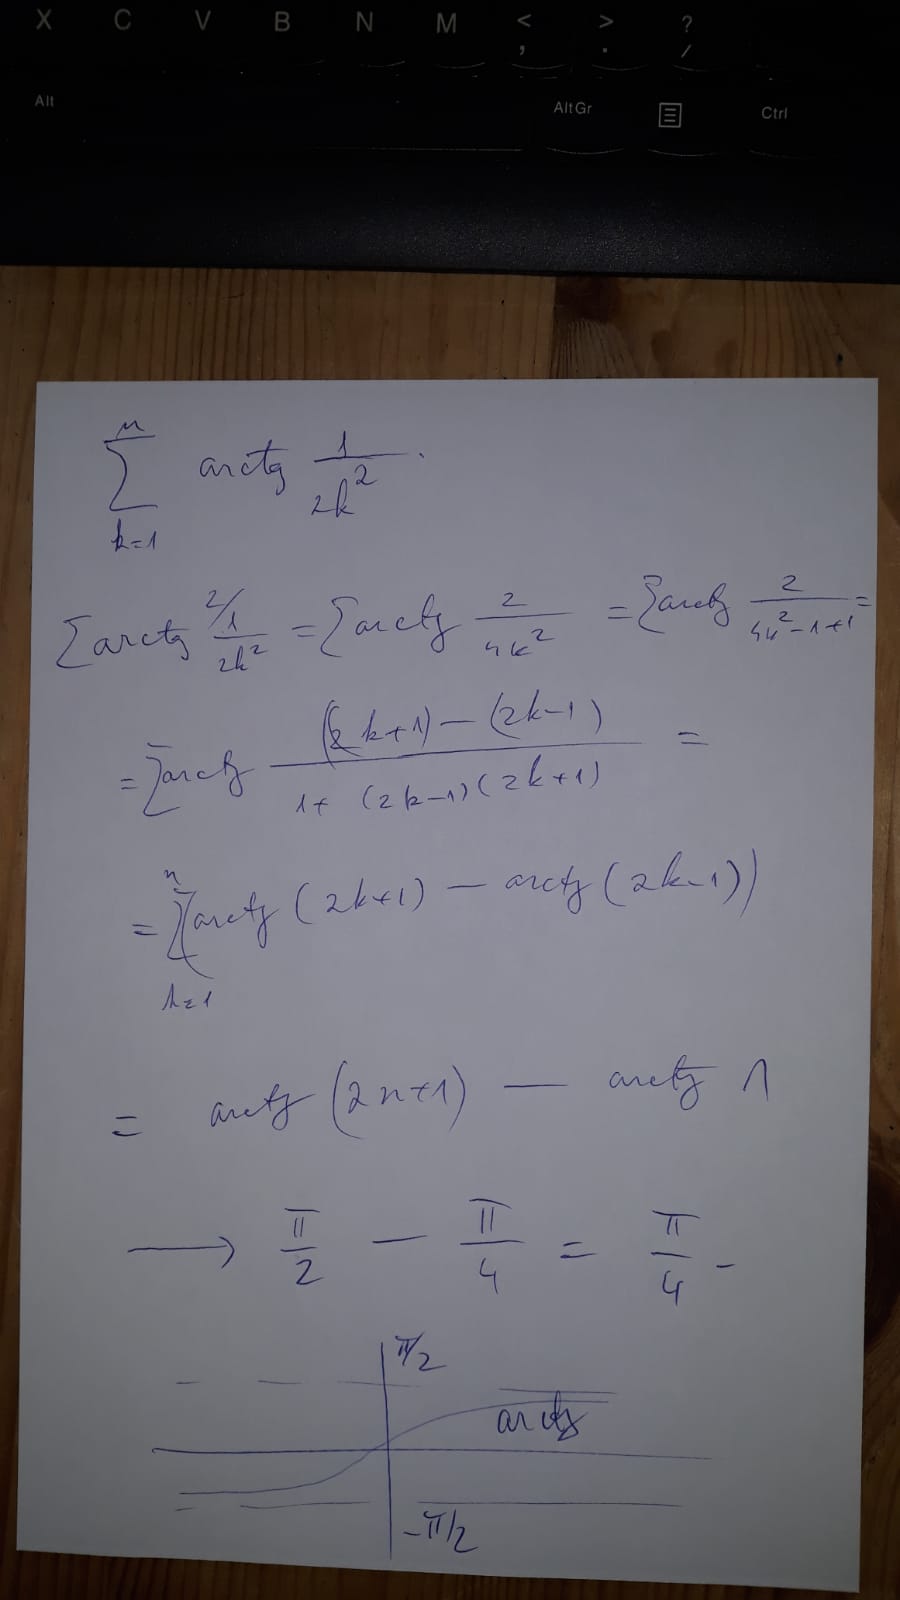 X C V B N M < , > . ? /
Alt Alt Gr Ctrl
n
∑ arctg 1/2k² .
k=1
∑ arctg 2/1/2k² = ∑ arctg 2/4k² = ∑ arctg 2/4k²-1+1 =
= ∑ arctg (2k+1) - (2k-1) / 1+ (2k-1)(2k+1) =
n
= ∑ (arctg (2k+1) - arctg (2k-1))
k=1
= arctg (2n+1) - arctg 1
→ π/2 - π/4 = π/4 -
π/2
arctg
-π/2